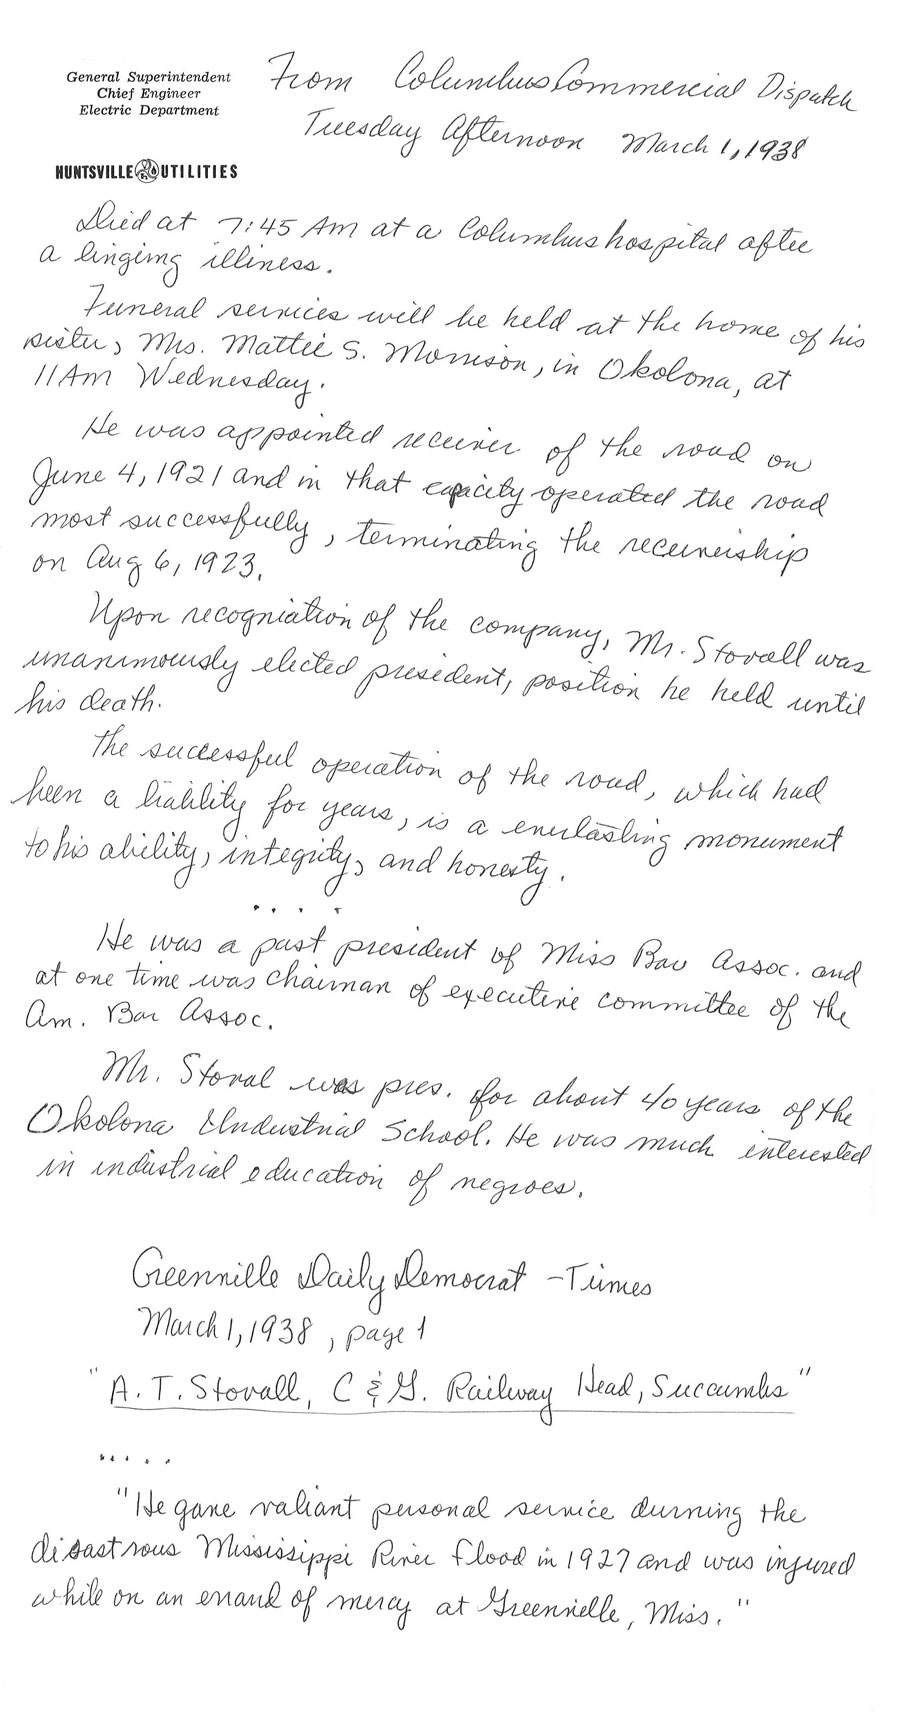 General Superintendent
Chief Engineer
Electric Department
HUNTSVILLE UTILITIES
From Columbus Commercial Dispatch
Tuesday Afternoon March 1, 1938
Died at 7:45 Am at a Columbus hospital after
a linging illiness.
Funeral services will be held at the home of his
sister, Mrs. Mattie S. Morrison, in Okolona, at
11 Am Wednesday.
He was appointed receiver of the road on
June 4, 1921 and in that capacity operated the road
most successfully, terminating the receivership
on Aug 6, 1923.
Upon recogniation of the company, Mr. Stovall was
unanimously elected president, position he held until
his death.
The successful operation of the road, which had
been a liability for years, is a everlasting monument
to his ability, integrity, and honesty.
. . . .
He was a past president of Miss Bar Assoc. and
at one time was chairman of executive committee of the
Am. Bar Assoc.
Mr. Stoval was pres. for about 40 years of the
Okolona Industrial School. He was much interested
in industrial education of negroes.
Greenville Daily Democrat - Times
March 1, 1938, page 1
"A. T. Stovall, C & G. Railway Head, Succumbs"
. . . . .
"He gave valiant personal service durning the
disastrous Mississippi River Flood in 1927 and was injured
while on an errand of mercy at Greenville, Miss."